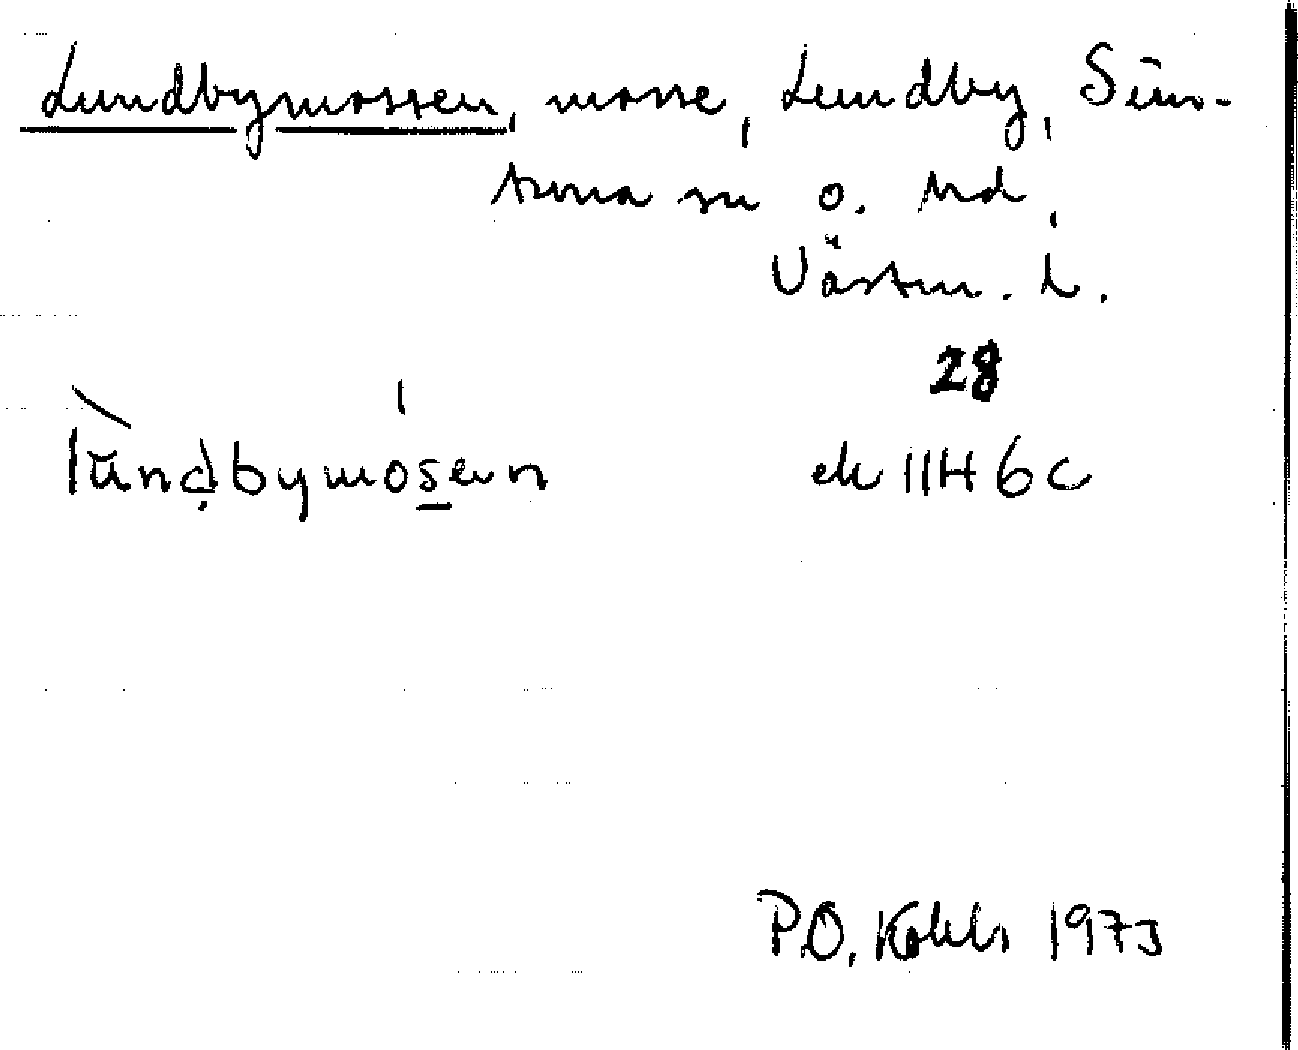 Lundbymossen, mosse, Lundby, Sim-
tuna sn o. hd,
Västm. l.
28
lùndbymósen ek 11H 6c
P.O. 1973